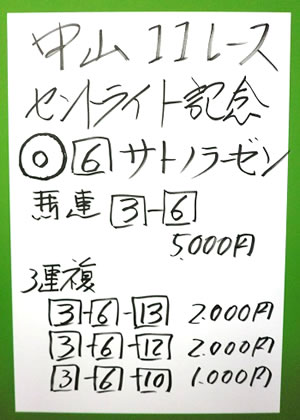 中山11レース
セントライト記念
◎ 6 サトノラーゼン
馬連 3-6
5,000円
3連複
3-6-13 2,000円
3-6-12 2,000円
3-6-10 1,000円